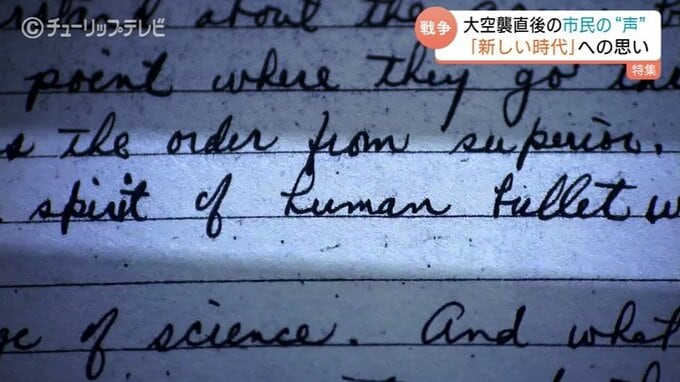 Ⓒチューリップテレビ
戦争
大空襲直後の市民の“声”
「新しい時代」への思い
特集
about the
point where they go
the order from superior.
spirit of human bullet w
of science. And what